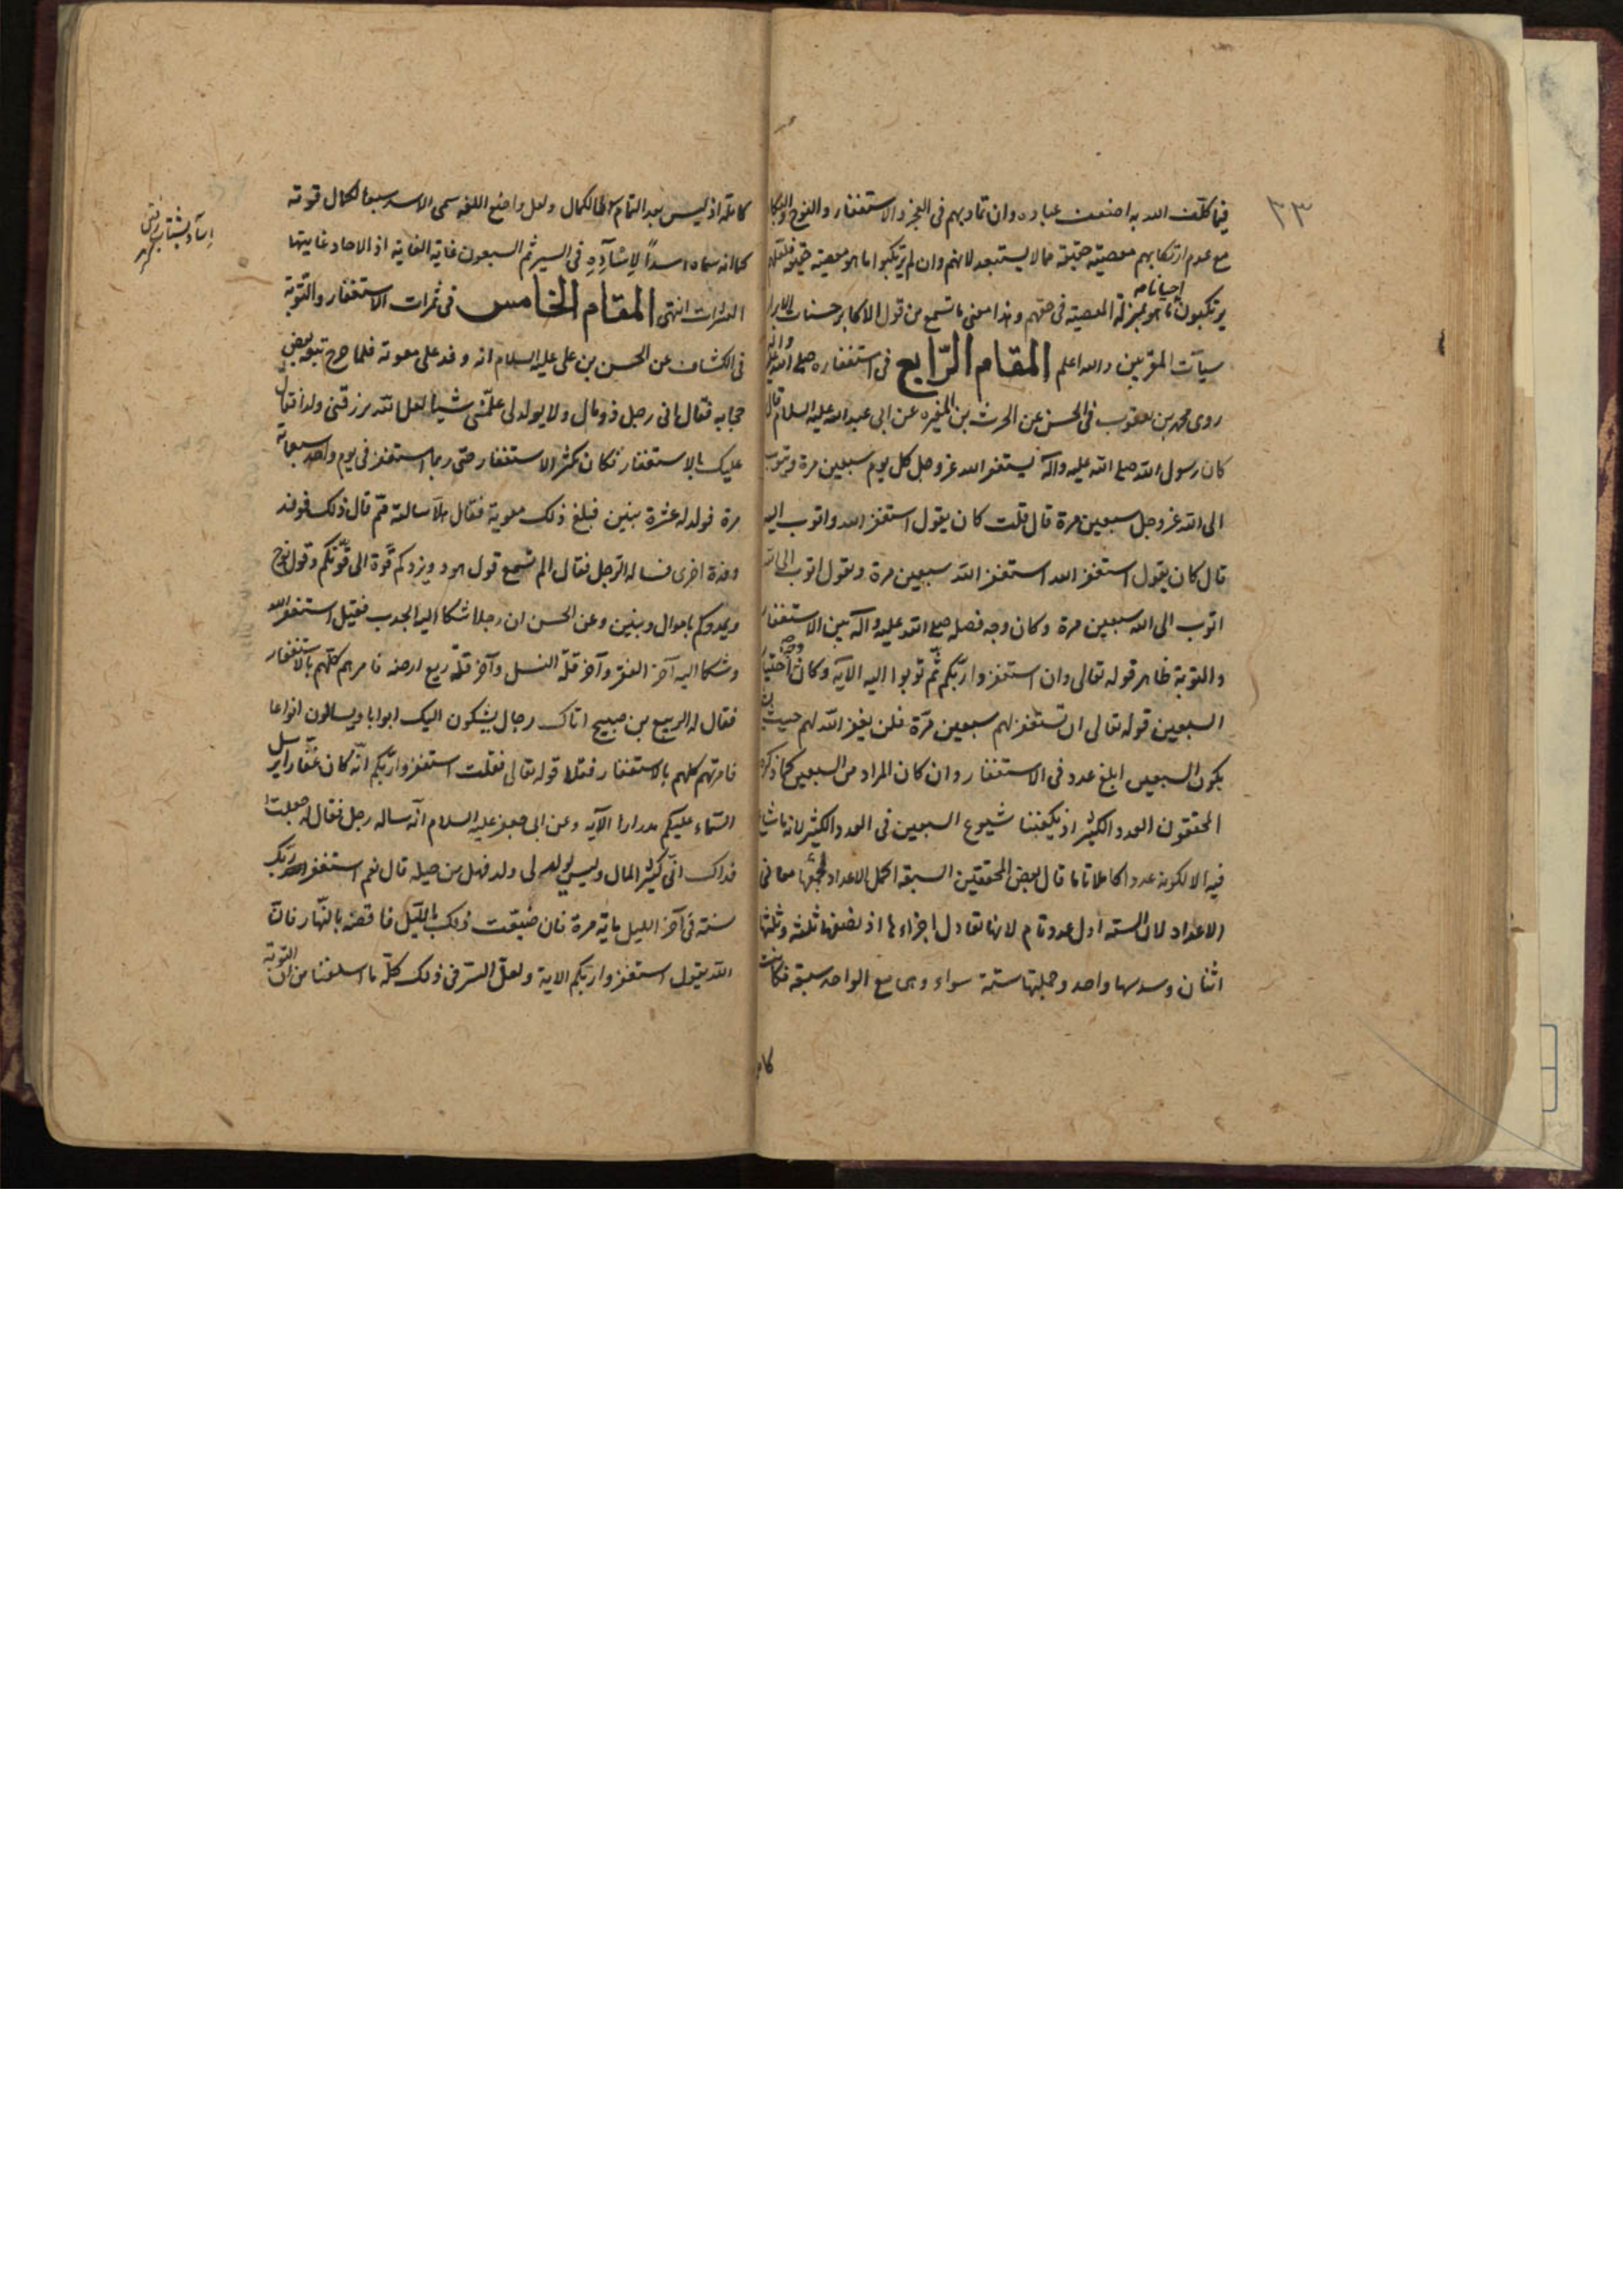 ٣٣
فيما كلّف الله به اضعف عباده وان تماديهم في العجز والاستغفار والنوح والبكا
مع عدم ارتكابهم معصيته حقيقة مما لا يستبعد لانهم وان لم يرتكبوا ما هو معصية حقيقة فلعلهم
احيانا
يرتكبون ما هو بمنزلة المعصية في حقهم وهذا معنى ما تسمع من قول الاكابر حسنات الابرار
سيآت المقربين والله اعلم المقام الرّابع في استغفاره صلى الله عليه واله
روى محمد بن يعقوب في الحسن عن الحرث بن المغيره عن ابي عبد الله عليه السلام قال
كان رسول الله صلى الله عليه وآله يستغفر الله عز وجل كل يوم سبعين مرة ويتوب
الى الله عز وجل سبعين مرة قال قلت كان يقول استغفر الله واتوب اليه
قال كان يقول استغفر الله استغفر الله سبعين مرة ويقول اتوب الى الله
اتوب الى الله سبعين مرة وكان وجه فصله صلى الله عليه وآله بين الاستغفار
والتوبة ظاهر قوله تعالى وان استغفروا ربّكم ثمّ توبوا اليه الآية وكان وجه اختيار
السبعين قوله تعالى ان تستغفر لهم سبعين مرّة فلن يغفر الله لهم حيث
يكون السبعين ابلغ عدد في الاستغفار وان كان المراد من السبعين كما ذكره
المحققون العدد الكثير اذ يكفينا شيوع السبعين في العدد الكثير لانه ما شاع
فيه الا لكونه عددا كاملا تاما قال بعض المحققين السبعة اكمل الاعداد لجمعها معاني
الاعداد لان الستة اول عدد تام لانها تعادل اجزاءها اذ نصفها ثلثة وثلثها
اثنان وسدسها واحد وجملتها ستة سواء وهي مع الواحد سبعة فكانت
كاملة اذ ليس بعد التمام الا الكمال ولعل واضع اللغة سمى الاسد سبعا لكمال قوته
كما انه سماه اسداً لإسْآدِهِ في السير ثم السبعون غاية الغاية اذ الاحاد غايتها
العشرات انتهى المقام الخامس في ثمرات الاستغفار والتوبة
في الكشاف عن الحسن بن علي عليه السلام انه وفد على معوية فلما خرج تبعه بعض
حجابه فقال اني رجل ذو مال ولا يولد لي علّمني شيا لعل الله يرزقني ولدا فقال
عليك بالاستغفار فكان يكثر الاستغفار حتى ربما استغفر في يوم واحد سبعماية
مرة فولد له عشرة بنين فبلغ ذلك معوية فقال هلّا سالته ممّ قال ذلك فوفد
وفدة اخرى فساله الرجل فقال الم تسمع قول هود ويزدكم قوّة الى قوّتكم وقول نوح
ويمددكم باموال وبنين وعن الحسن ان رجلا شكا اليه الجدب فقيل استغفر الله
وشكا اليه آخر الفقر وآخر قلّة النسل وآخر قلّة ريع ارضه فامرهم كلّهم بالاستغفار
فقال له الربيع بن صبيح اتاك رجال يشكون اليك ابوابا ويسالون انواعا
فامرتهم كلهم بالاستغفار فتلا قوله تعالى فقلت استغفروا ربّكم انّه كان غفّارا يرسل
السّماء عليكم مدرارا الآية وعن ابي جعفر عليه السلام انّه ساله رجل فقال له جعلت
فداك انّي كثير المال وليس يولد لي ولد فهل من حيلة قال نعم استغفر ربّك
سنة في آخر الليل ماية مرة فان ضيّعت ذلك باللّيل فاقضه بالنّهار فان
الله يقول استغفروا ربّكم الاية ولعلّ السّر في ذلك كلّه ما اسلفنا من ان التوبة